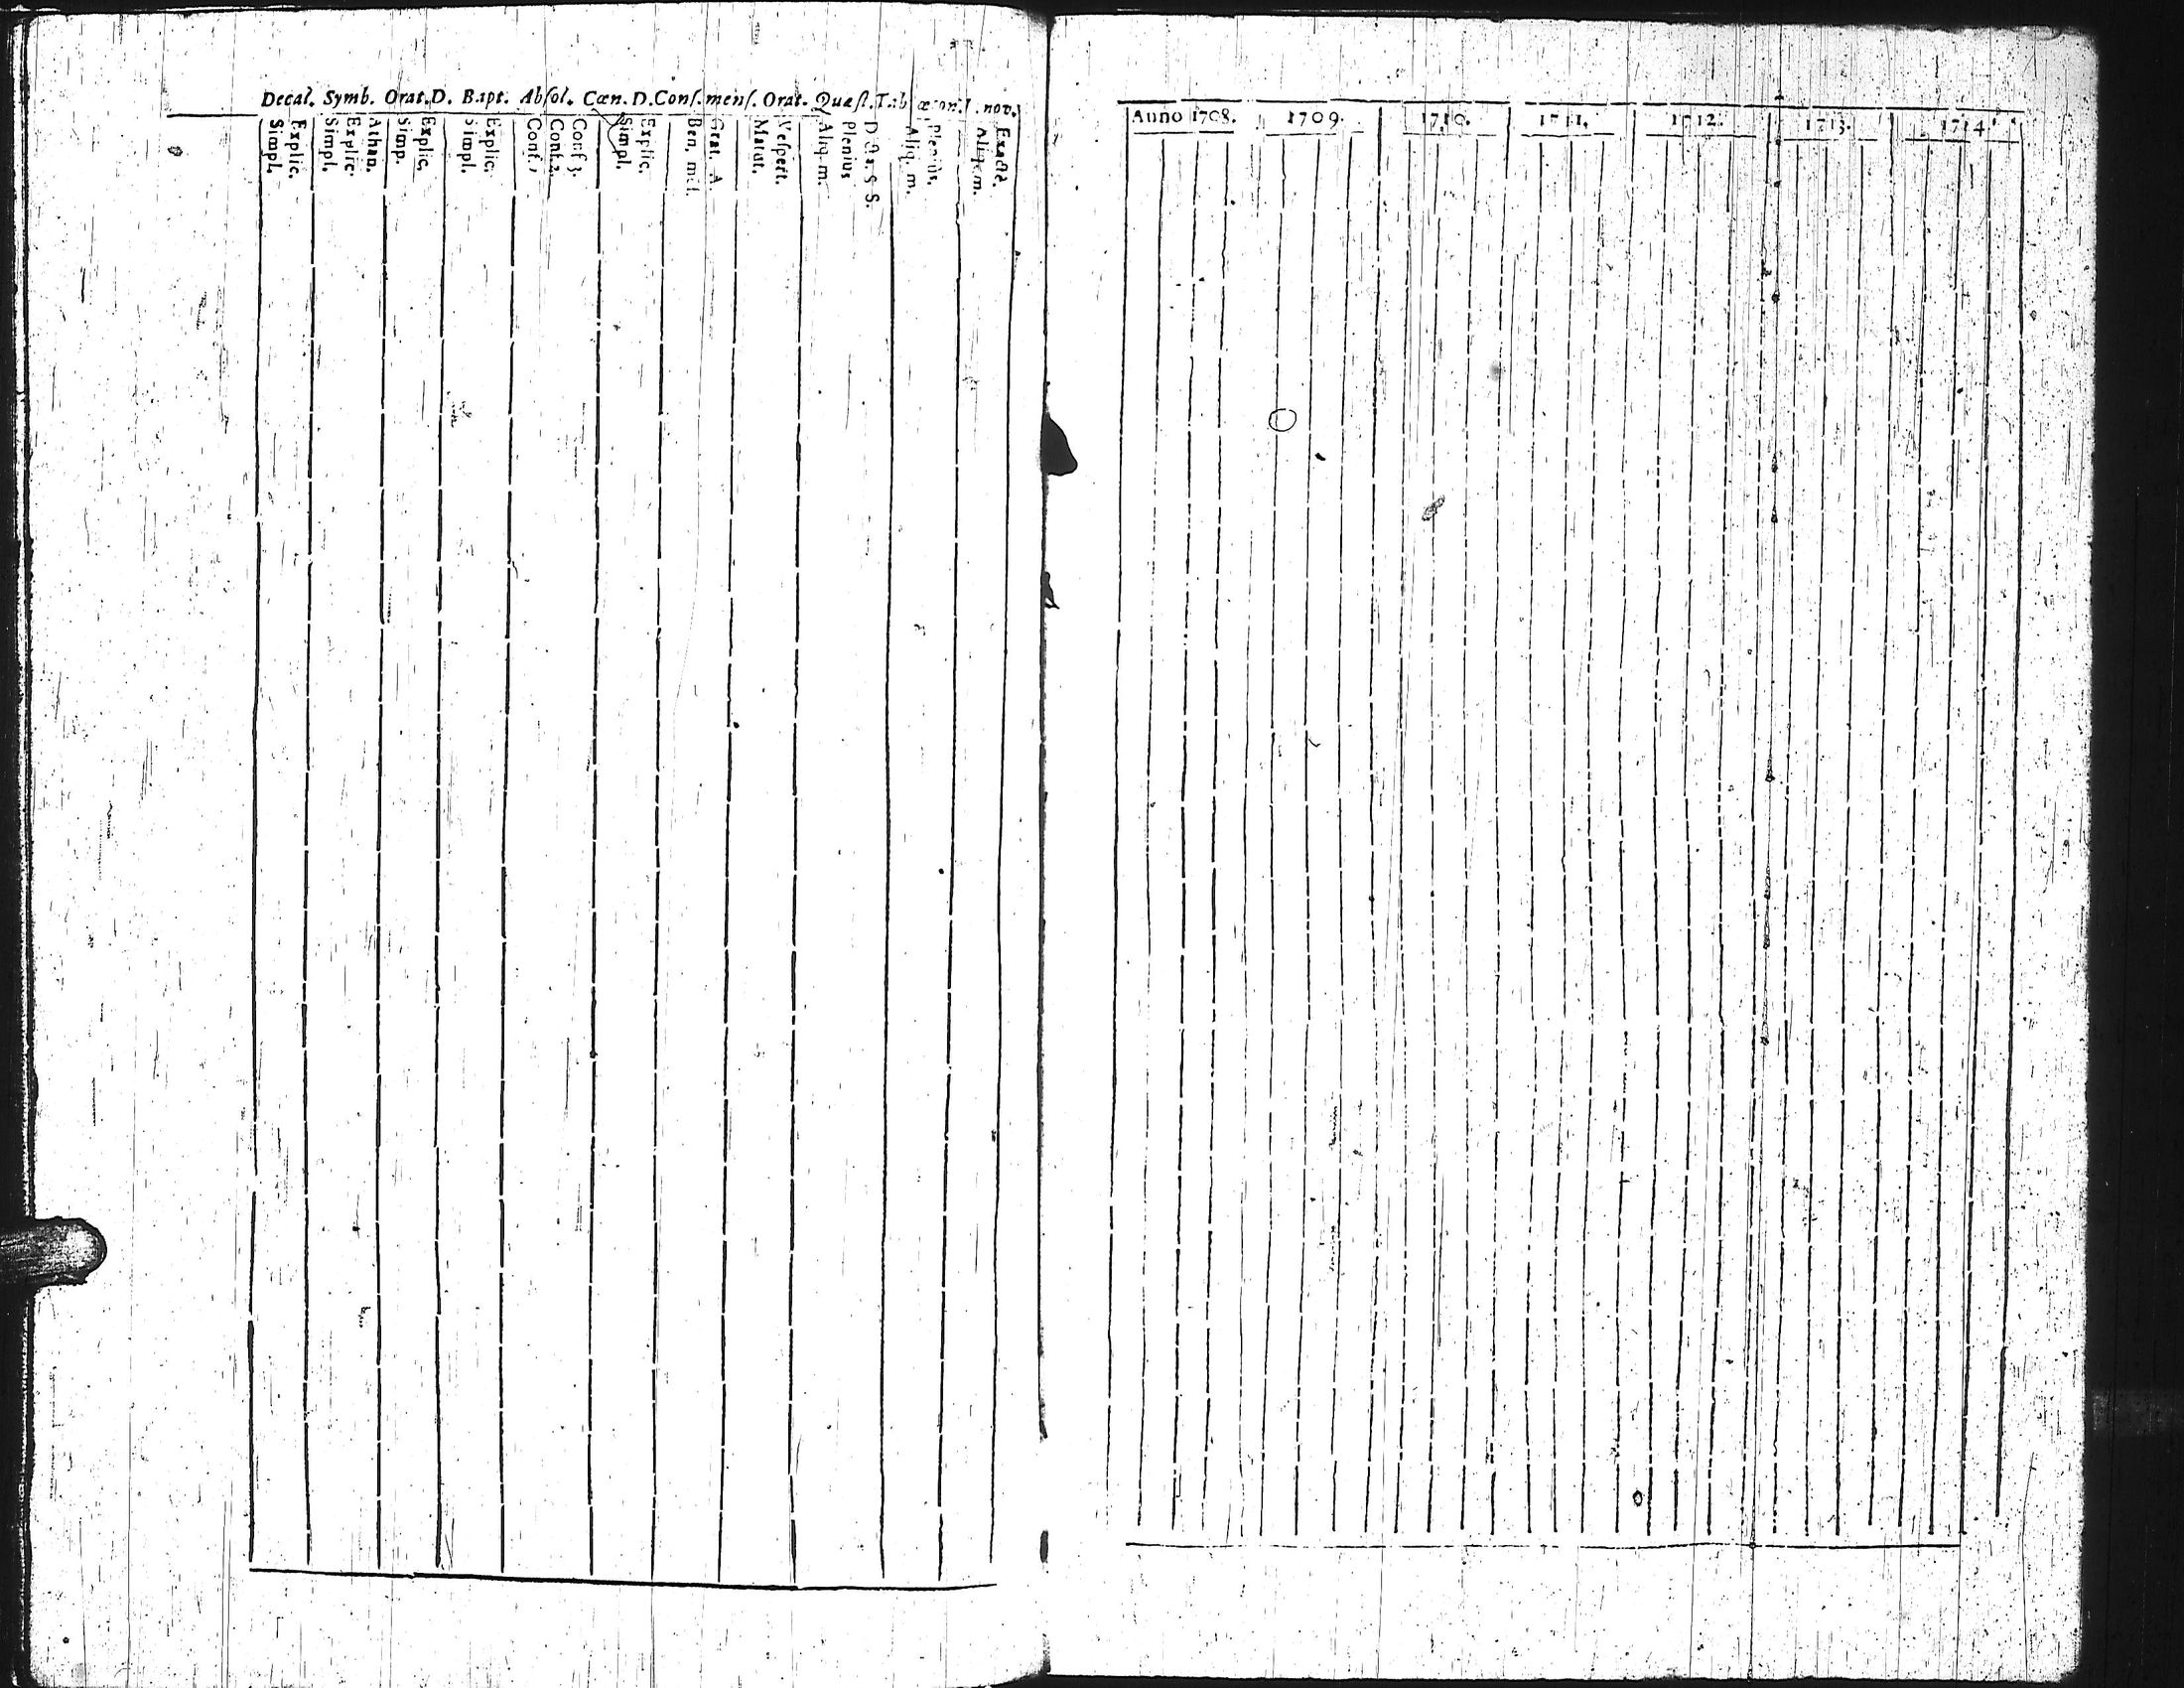 Decal. Symb. Orat. D. Bapt. Absol. Cœn. D. Conf. mens. Orat. Quæst. Tab. œcon. nov.
Simpl. Explic. Simpl. Explic. Athan. Simp. Explic. Simpl. Explic. Conf. 1 Conf. 2. Conf 3. Simpl. Explic. Ben. Grat. A. Matut. Vespert. Aliq. m. Plenius Aliq. m. Pleniùs. Aliq. m. Exactè.
Anno 1708. 1709. 1710. 1711. 1712. 1713. 1714.